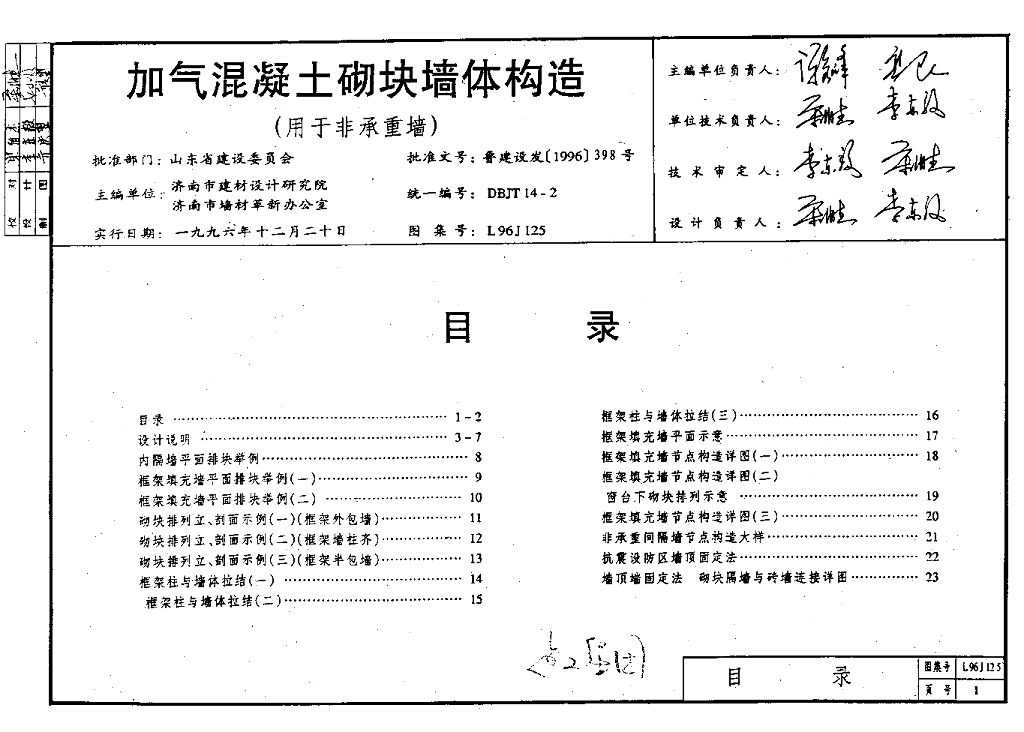 加气混凝土砌块墙体构造
(用于非承重墙)
批准部门：山东省建设委员会
批准文号：鲁建设发〔1996〕398号
主编单位：济南市建材设计研究院
济南市墙材革新办公室
统一编号：DBJT 14-2
实行日期：一九九六年十二月二十日
图集号：L96J125
主编单位负责人：
单位技术负责人：
技术审定人：
设计负责人：
校对
设计
制图
目录
目录 1-2
设计说明 3-7
内隔墙平面排块举例 8
框架填充墙平面排块举例(一) 9
框架填充墙平面排块举例(二) 10
砌块排列立、剖面示例(一)(框架外包墙) 11
砌块排列立、剖面示例(二)(框架墙柱齐) 12
砌块排列立、剖面示例(三)(框架半包墙) 13
框架柱与墙体拉结(一) 14
框架柱与墙体拉结(二) 15
框架柱与墙体拉结(三) 16
框架填充墙平面示意 17
框架填充墙节点构造详图(一) 18
框架填充墙节点构造详图(二)
窗台下砌块排列示意 19
框架填充墙节点构造详图(三) 20
非承重间隔墙节点构造大样 21
抗震设防区墙顶固定法 22
墙顶端固定法 砌块隔墙与砖墙连接详图 23
目录
图集号 L96J125
页号 1